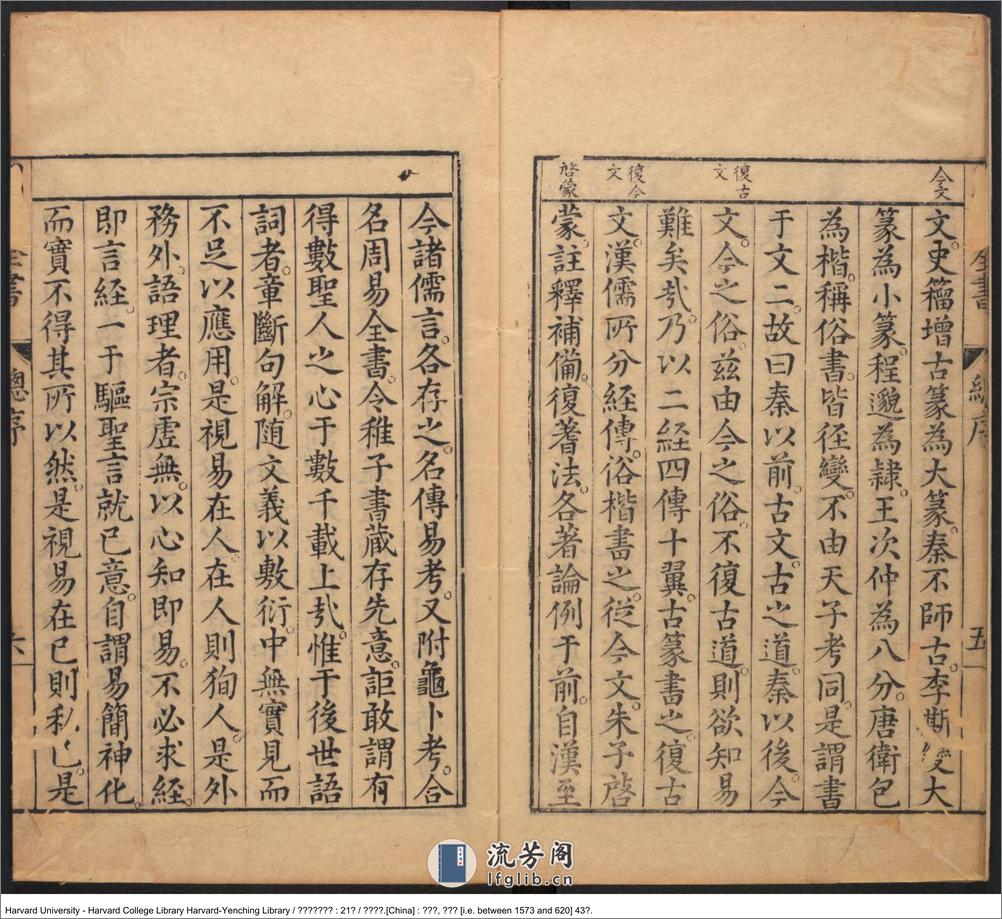 今文
復古文
復今文
啓蒙
文史籀增古篆為大篆秦不師古李斯變大
篆為小篆程邈為隷王次仲為八分唐衛包
為楷稱俗書皆徑變不由天子考同是謂書
于文二故曰秦以前古文古之道秦以後今
文今之俗兹由今之俗不復古道則欲知易
難矣㢤乃以二經四傳十翼古篆書之復古
文漢儒所分經傳俗楷書之從今文朱子啓
蒙註釋補備復著法各著論例于前自漢至
全書
總序
五
今諸儒言各存之名傳易考又附龜卜考合
名周易全書今稚子書藏存先意詎敢謂有
得數聖人之心于數千載上㢤惟于後世語
詞者章斷句解隨文義以敷衍中無實見而
不足以應用是視易在人在人則狥人是外
務外語理者宗虛無以心知即易不必求經
即言經一于驅聖言就已意自謂易簡神化
而實不得其所以然是視易在已則私已是
全書
總序
六
流芳阁
lfglib.cn
Harvard University - Harvard College Library Harvard-Yenching Library / ??????? : 21? / ????.[China] : ???, ??? [i.e. between 1573 and 620] 43?.